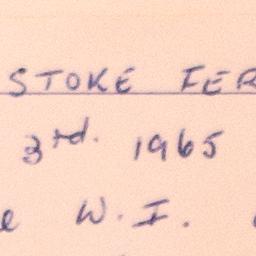 STOKE FER
3rd. 1965
e W. I.